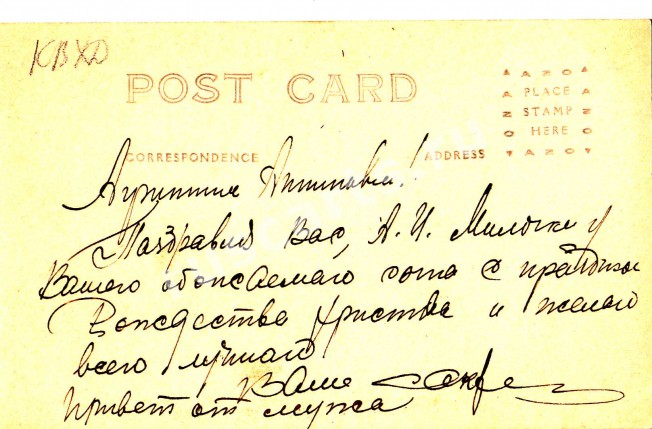 КВХД
POST CARD
AZO
PLACE
STAMP
HERE
AZO
CORRESPONDENCE
ADDRESS
Агриппина Антиповна!
Поздравляю Вас, А. И. Милочку и
Вашего обожаемаго с праздником
Рождества Христова и желаю
всего лучшаго
Ваше
Привет от мужа